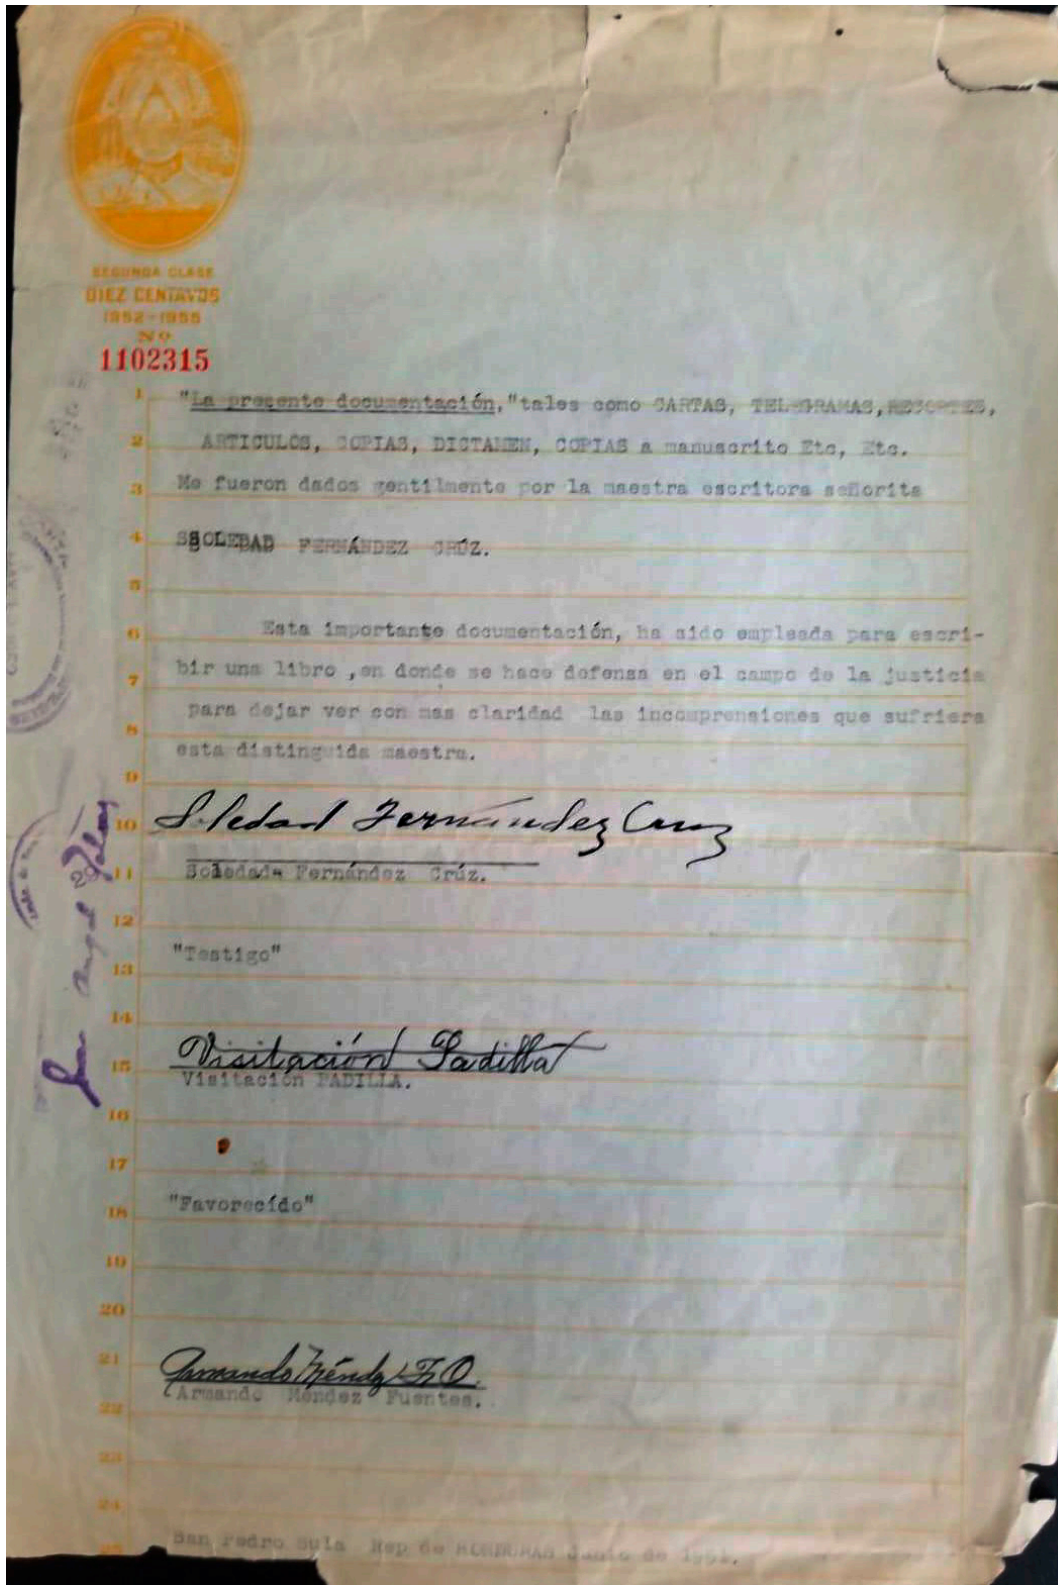 SEGUNDA CLASE
DIEZ CENTAVOS
1952-1955
Nº
1102315
1 "La presente documentación,"tales como CARTAS, TELEGRAMAS,RECORTES,
2 ARTICULOS, COPIAS, DICTAMEN, COPIAS a manuscrito Etc, Etc.
3 Me fueron dados gentilmente por la maestra escritora señorita
4 SSOLEDAD FERNÁNDEZ CRÚZ.
5
6 Esta importante documentación, ha sido empleada para escri-
7 bir una libro ,en donde se hace defensa en el campo de la justicia
8 para dejar ver con mas claridad las incomprensiones que sufriera
9 esta distinguida maestra.
10 Soledad Fernández Cruz
11 Soledada Fernández Crúz.
12
13 "Testigo"
14
15 Visitación Padilla
Visitación PADILLA.
16
17
18 "Favorecído"
19
20
21 Armando Méndez F.
22 Armando Méndez Fuentes.
23
24
25 San Pedro Sula Rep de HONDURAS Junio de